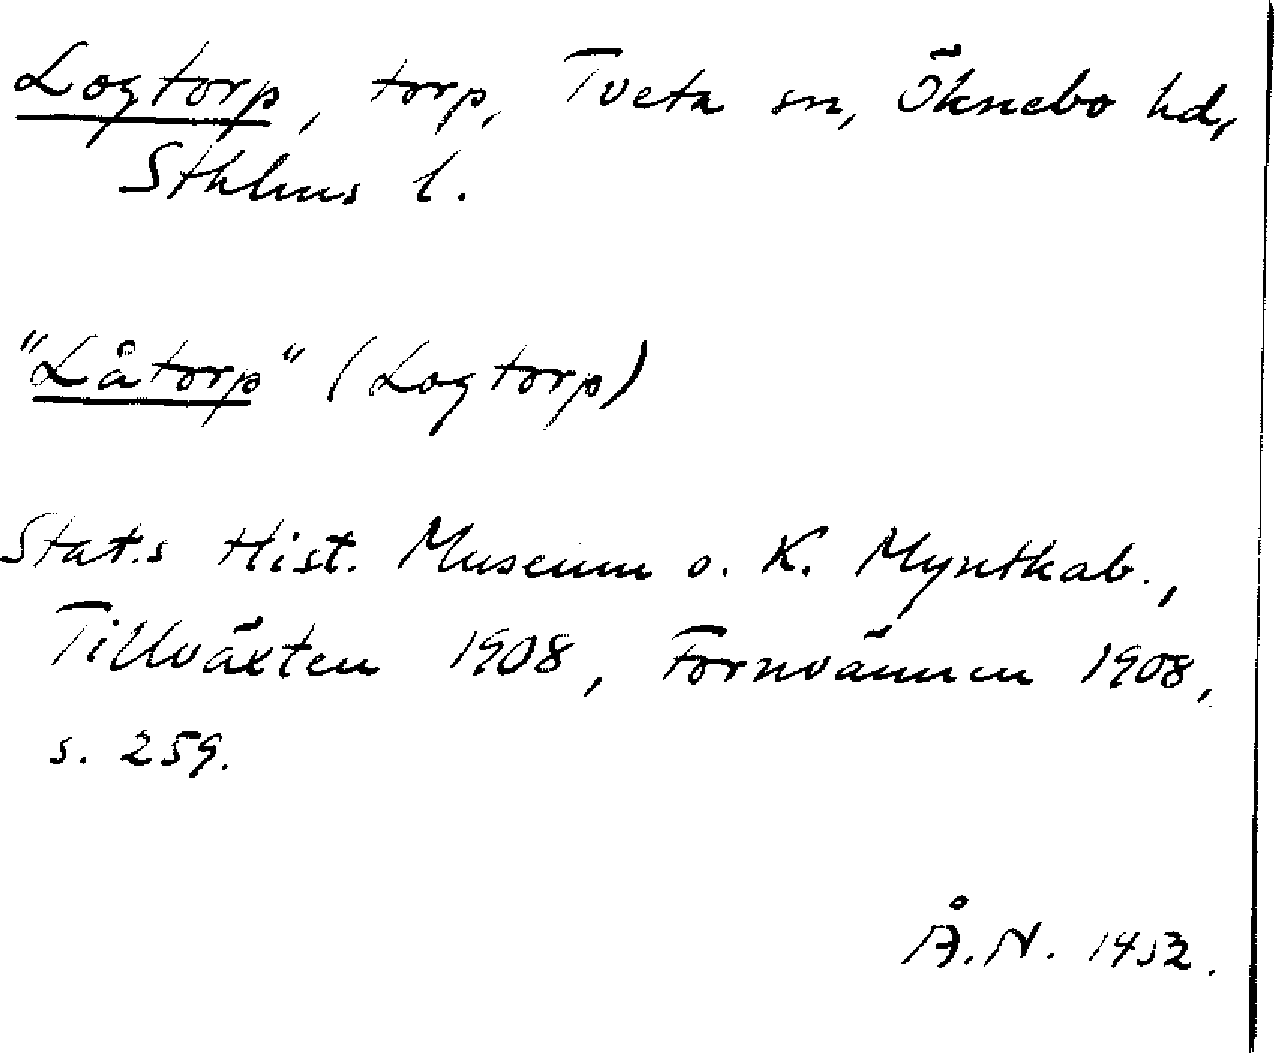 Logtorp, torp, Tveta sn, Öknebo hd,
Sthlms l.
"Låtorp" (Logtorp)
Stat.s Hist. Museum o. K. Myntkab.,
Tillväxten 1908, Fornvännen 1908,
s. 259.
Å.N. 1952.